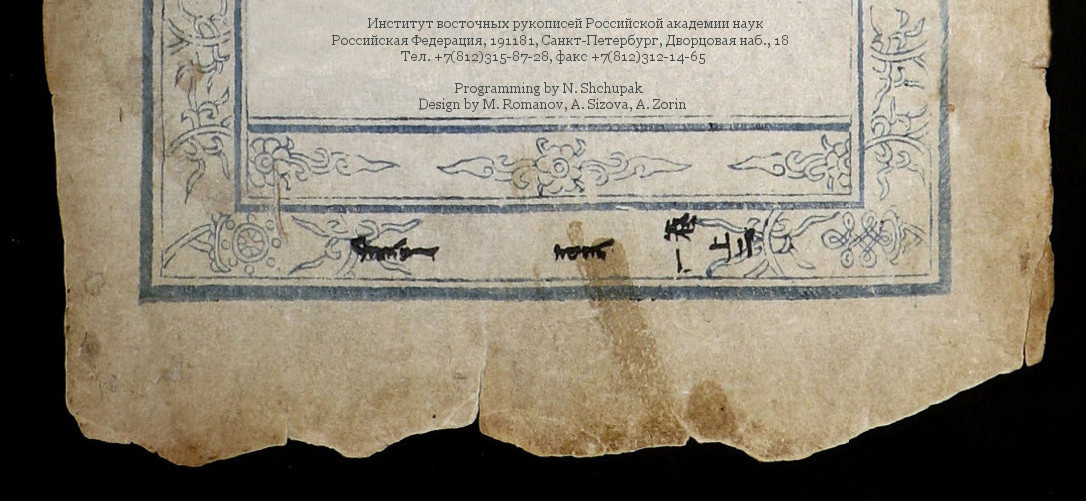 Институт восточных рукописей Российской академии наук
Российская Федерация, 191181, Санкт-Петербург, Дворцовая наб., 18
Тел. +7(812)315-87-28, факс +7(812)312-14-65
Programming by N. Shchupak
Design by M. Romanov, A. Sizova, A. Zorin